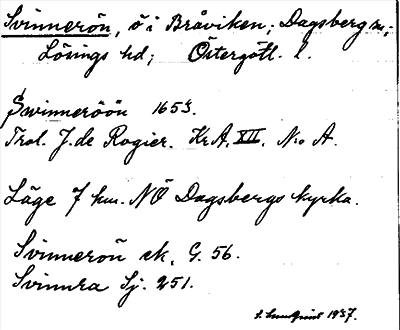 Svinnerön, ö i Bråviken; Dagsberg sn;
Lösings hd; Östergötl. l.
Swinneröön 1653.
Trol. J. de Rogier. Kr.A. XII. No A.
Läge 7 km. NÖ Dagsbergs kyrka.
Svinnerön ek. G. 56.
Svinnra Sj. 251.
1937.